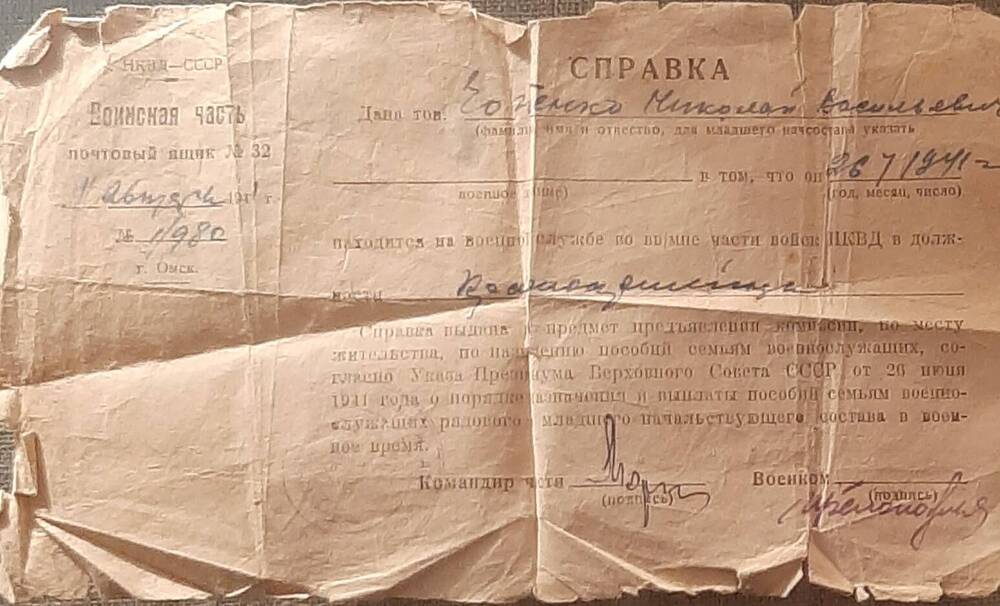 НКВД—СССР
Воинская часть
почтовый ящик № 32
11 Августа 1941 г.
№ 11980
г. Омск.
СПРАВКА
Дана тов. Николай Васильевич
(фамилия имя и отчество, для младшего начсостава указать
военное
в том, что он 26 7 1941 г
(год, месяц, число)
находится на военной службе во в/мне части войск НКВД в долж-
ности
Справка выдана в предмет предъявления комиссии, по месту
жительства, по назначению пособий семьям военнослужащих, со-
гласно Указа Президиума Верховного Совета СССР от 26 июня
1941 года о порядке назначения и выплаты пособий семьям военно-
служащих рядового младшего начальствующего состава в воен-
ное время.
Командир части
(подпись)
Военком
(подпись)